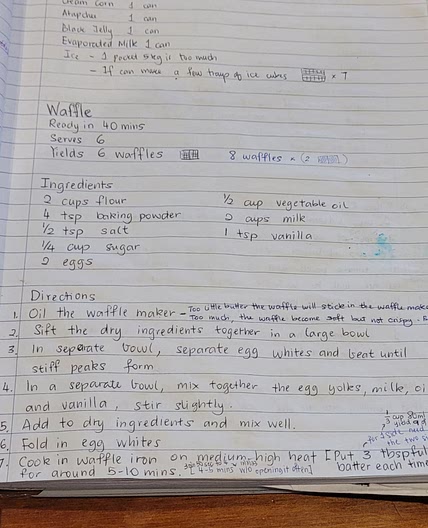 Cream Corn 1 can
Atapchu 1 can
Black Jelly 1 can
Evaporated Milk 1 can
Ice - 1 packet 5kg is too much
- If can make a few trays of ice cubes x 7
Waffle
Ready in 40 mins
Serves 6
Yields 6 waffles 8 waffles x (2 )
Ingredients
2 cups flour ½ cup vegetable oil
4 tsp baking powder 2 cups milk
½ tsp salt 1 tsp vanilla
¼ cup sugar
2 eggs
Directions
1. Oil the waffle maker - Too little butter the waffle will stick in the waffle make
Too much, the waffle become soft but not crispy.
2. Sift the dry ingredients together in a large bowl
3. In seperate bowl, separate egg whites and beat until
stiff peaks form
4. In a separate bowl, mix together the egg yolks, milk, oi
and vanilla, stir slightly.
5. Add to dry ingredients and mix well.
6. Fold in egg whites
7. Cook in waffle iron on medium-high heat [Put 3 tbspful
for around 5-10 mins. [4-5 mins w/o opening it often] batter each time